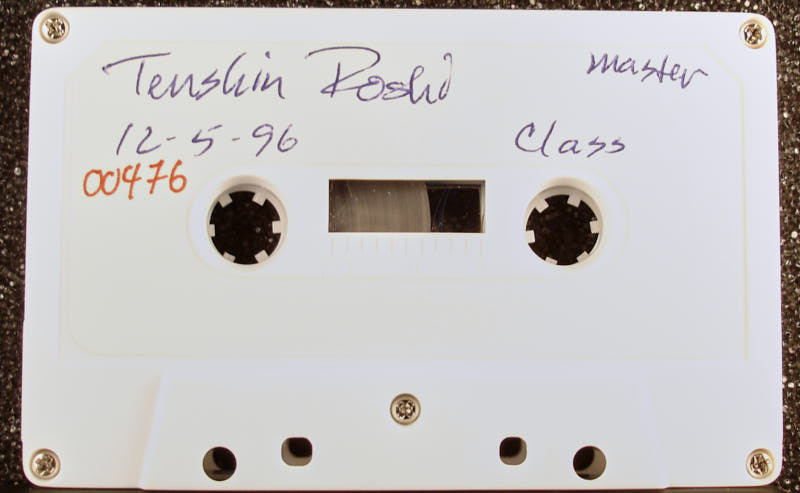 Tenshin Roshi master
12-5-96 Class
00476